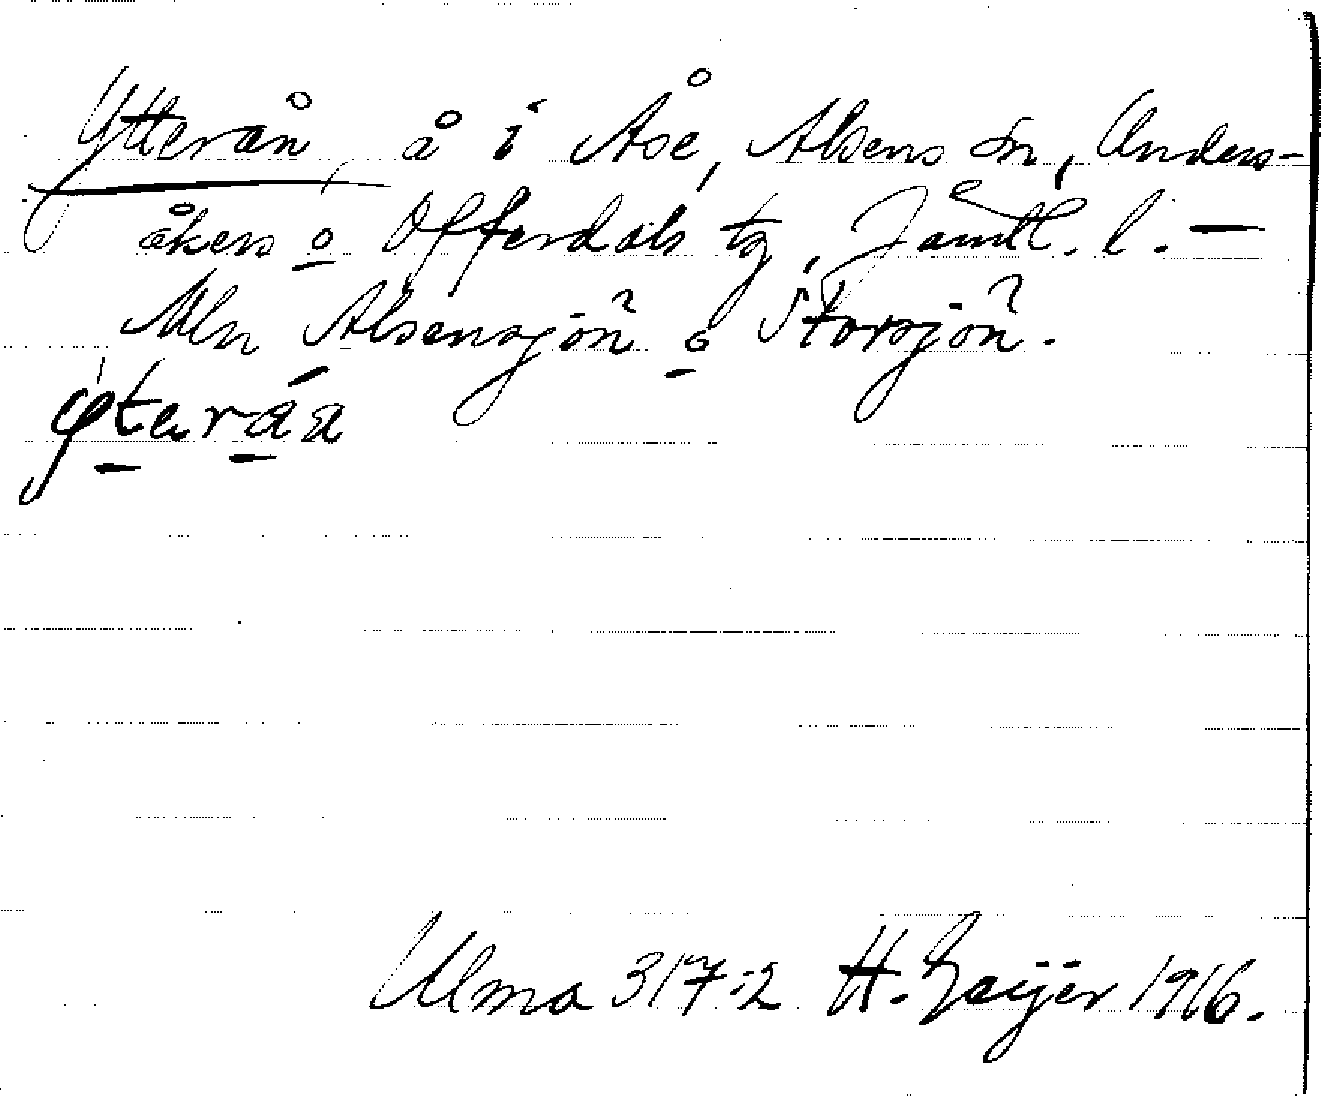 Ytterån, å i Åse, Alsens sn, Anders-
åkers o Offerdals tg, Jämtl. l. —
Mln Alsensjön o Storsjön.
yteråa
Ulma 317:2 H. Geijer 1916.